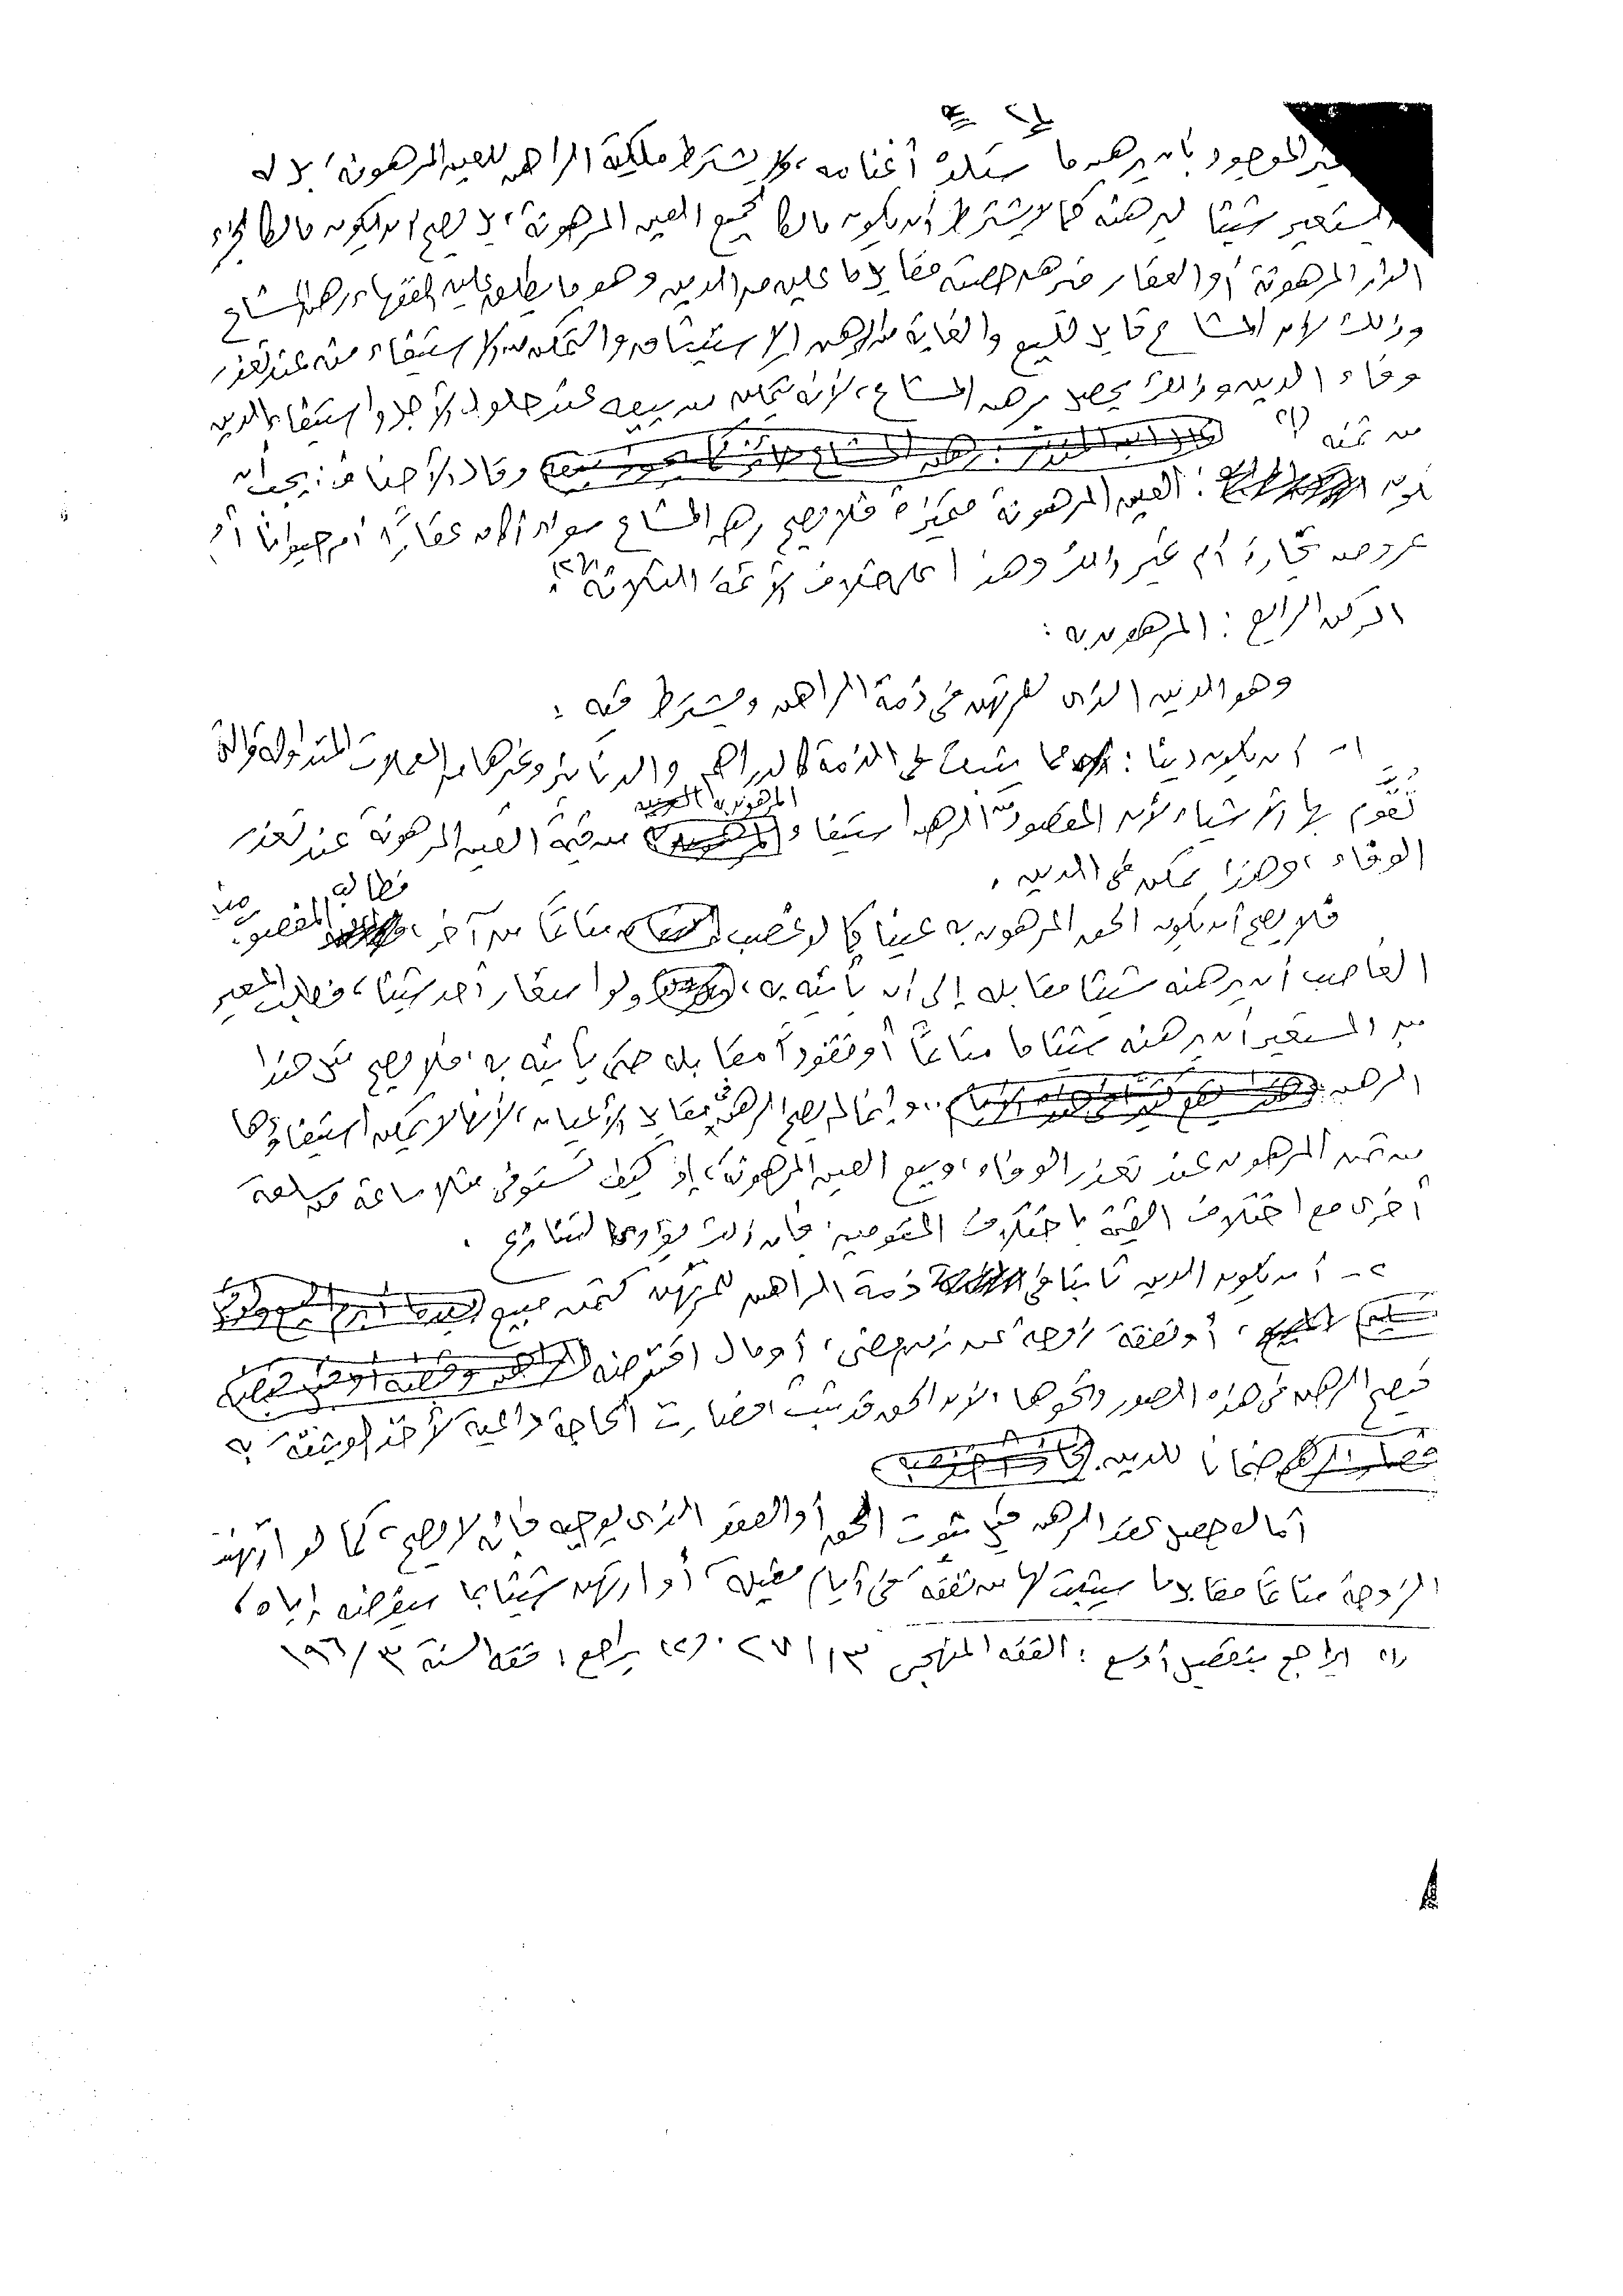 غير الموجود بأن يرهن ما ستلده أغنامه، ولا يشترط ملكية الراهن للعين المرهونة، بل له
يستعير شيئا ليرهنه كما لا يشترط أن يكون مالكا لجميع العين المرهونة، بل يصح أن يكون مالكا لجزء
الدار المرهونة أو العقار فيرهن حصته مقابل ما عليه من الدين وهو ما يطلق عليه الفقهاء رهن المشاع
وذلك لأن المشاع قابل للبيع والغاية من الرهن الاستيثاق والتمكن من الاستيفاء منه عند تعذر
وفاء الدين وذلك يحصل برهن المشاع، لأنه يتمكن من بيعه عند حلول الأجل واستيفاء الدين
من ثمنه (١) وقال الأحناف: يجب أن
تكون العين المرهونة متميزة فلا يصح رهن المشاع سواء أكان عقارًا أم حيوانا أم
عروض تجارة أم غير ذلك وهذا على خلاف الأئمة الثلاثة (٢).
الركن الرابع: المرهون به:
وهو الدين الذى للمرتهن فى ذمة الراهن ويشترط فيه:
١- أن يكون دينا: مما يثبت فى الذمة كالدراهم والدنانير وغيرها من العملات المتداولة والتى
تُقَوَّم بها الأشياء لأن المقصود من الرهن استيفاء المرهون به من قيمة العين المرهونة عند تعذر
الوفاء، وهذا ممكن فى الدين.
فلا يصح أن يكون الحق المرهون به عينا كما لو غصب متاعًا من آخر، فطالب المغصوب منه
الغاصب أن يرهنه شيئا مقابله إلى أن يأتيه به، ولو استعار أحد شيئا، فطلب المعير
من المستعير أن يرهنه شيئا ما متاعًا أو نقودًا مقابله حتى يأتيه به، فلا يصح مثل هذا
الرهن.. وإنما لم يصح الرهن فى مقابل الأعيان، لأنها لا يمكن استيفاؤها
من ثمن المرهون عند تعذر الوفاء، وبيع العين المرهونة، إذ كيف تستوفى مثلا ساعة من سلعة
أخرى مع اختلاف القيمة باختلاف المقومين فإن ذلك يؤدى للتنازع.
٢- أن يكون الدين ثابتا فى ذمة الراهن للمرتهن كثمن مبيع
، أو نفقة زوجة عن زمن مضى، أو مال اقترضه
فيصح الرهن فى هذه الصور ونحوها، لأن الحق قد ثبت فصارت الحاجة داعية لأخذ الوثيقة به
ضمانا للدين.
أما لو حصل عقد الرهن قبل ثبوت الحق أو العقد الذى يوجبه فإنه لا يصح، كما لو ارتهنت
الزوجة متاعًا مقابل ما سيثبت لها من نفقة فى أيام مقبلة، أو ارتهن شيئا بما سيقرضه إياه،
(١) يراجع بتفصيل أوسع: الفقه المنهجى ١١٣/٧ (٢) يراجع: فقه السنة ١٩٦/٣